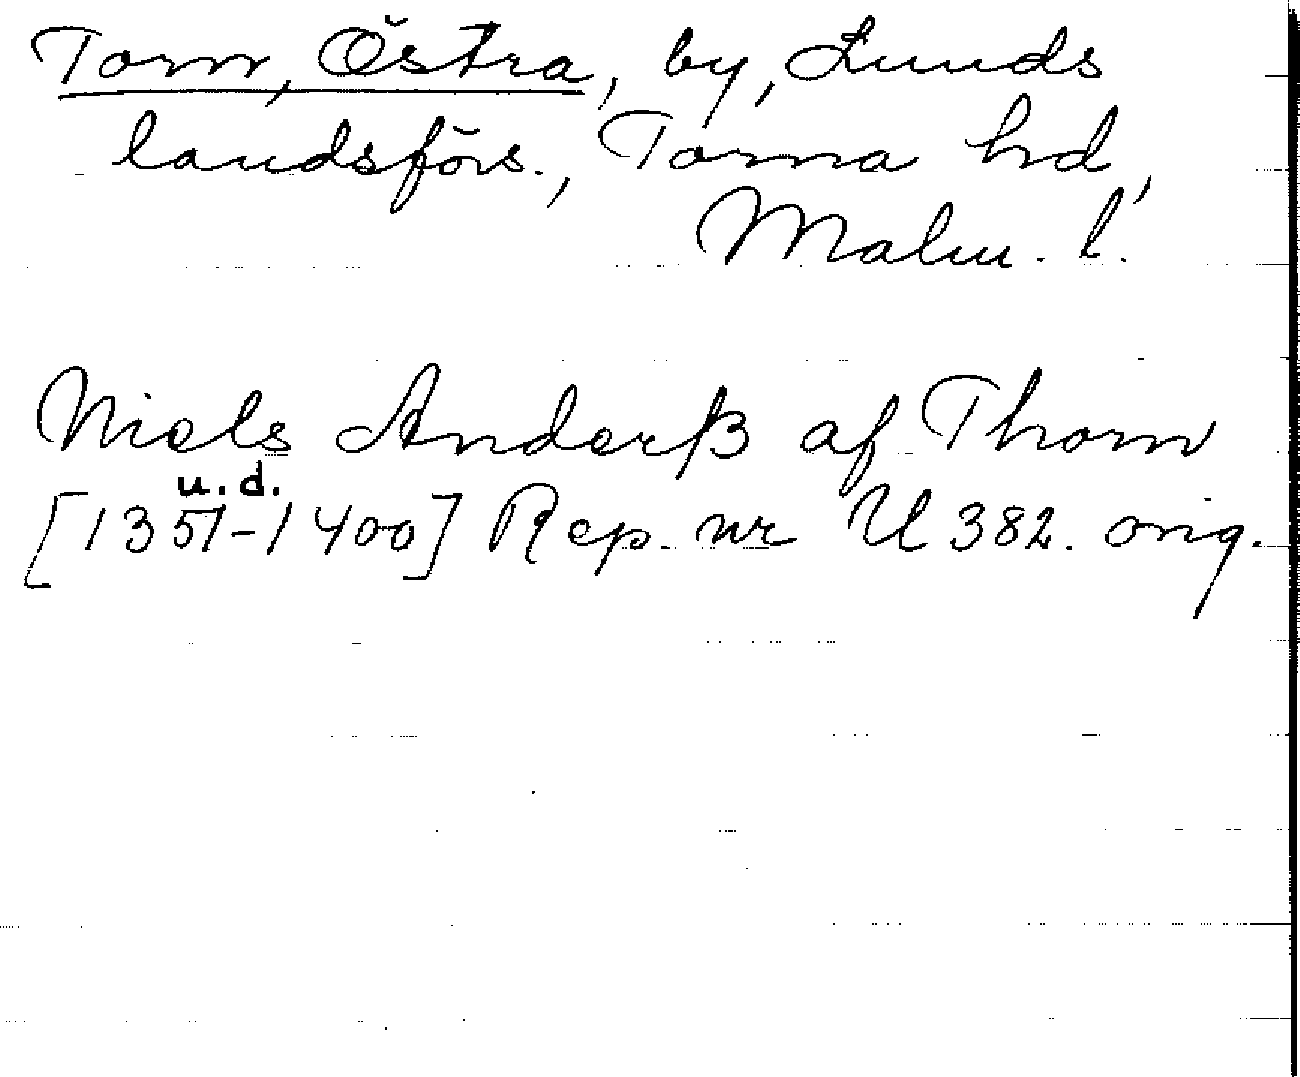 Torn, Östra, by, Lunds
landsförs., Torna hd,
Malm. l.
Niels Anderß af Thorn
u. d.
[1351-1400] Rep. nr U 382. orig.